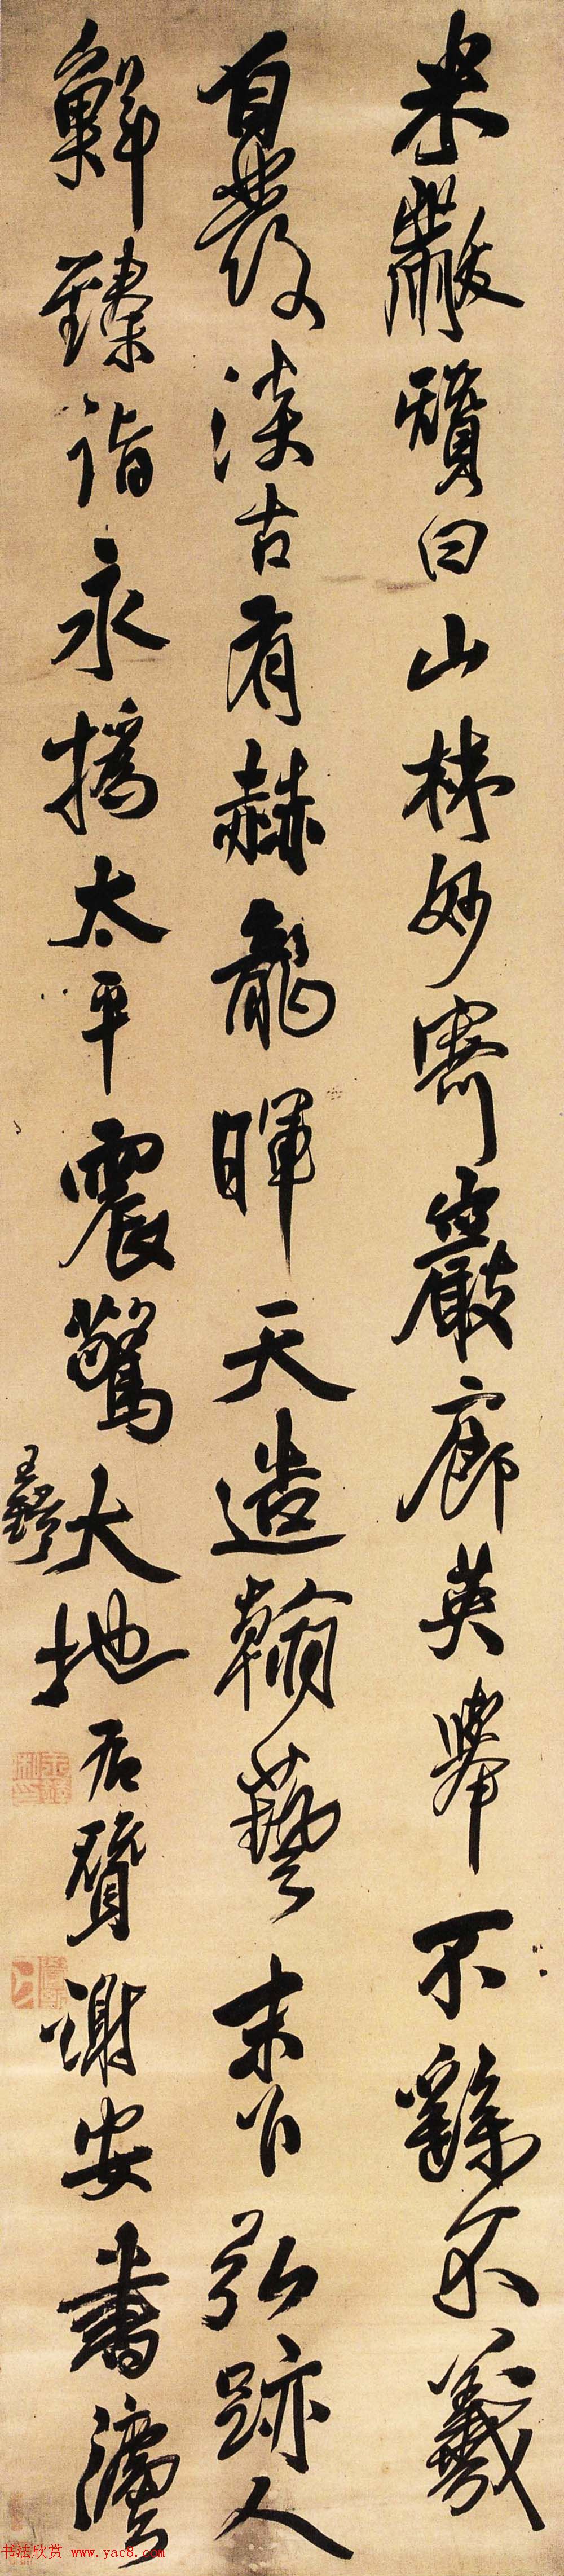 米黻贊曰山林妙寄巖廊英舉不繇不羲
自發淡古有赫龍暉天造翰藝末以弘跡人
鮮臻詣永撝太平震驚大地右贊謝安書濤
王鐸
书法欣赏 www.yac8.com